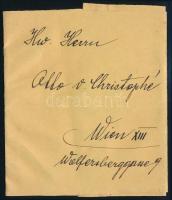 Hw. Herrn
Otto v. Christophé
Wien XIII
Wolfersberggasse 9